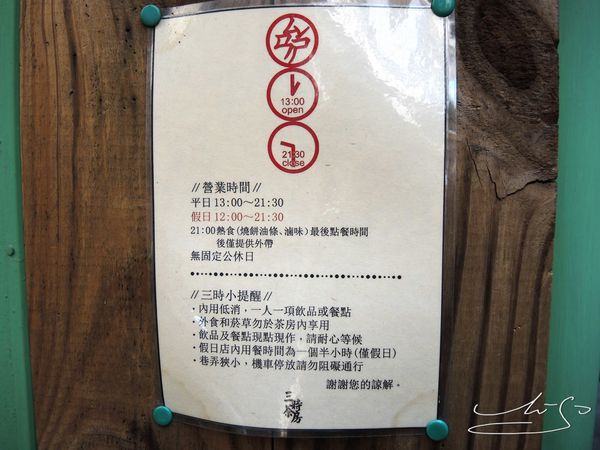 13:00
open
21:30
close
//營業時間//
平日13:00～21:30
假日12:00～21:30
21:00熱食(燒餅油條、滷味)最後點餐時間
後僅提供外帶
無固定公休日
//三時小提醒//
·內用低消，一人一項飲品或餐點
·外食和菸草勿於茶房內享用
·飲品及餐點現點現作，請耐心等候
·假日店內用餐時間為一個半小時(僅假日)
·巷弄狹小，機車停放請勿阻礙通行
謝謝您的諒解。
三時茶房